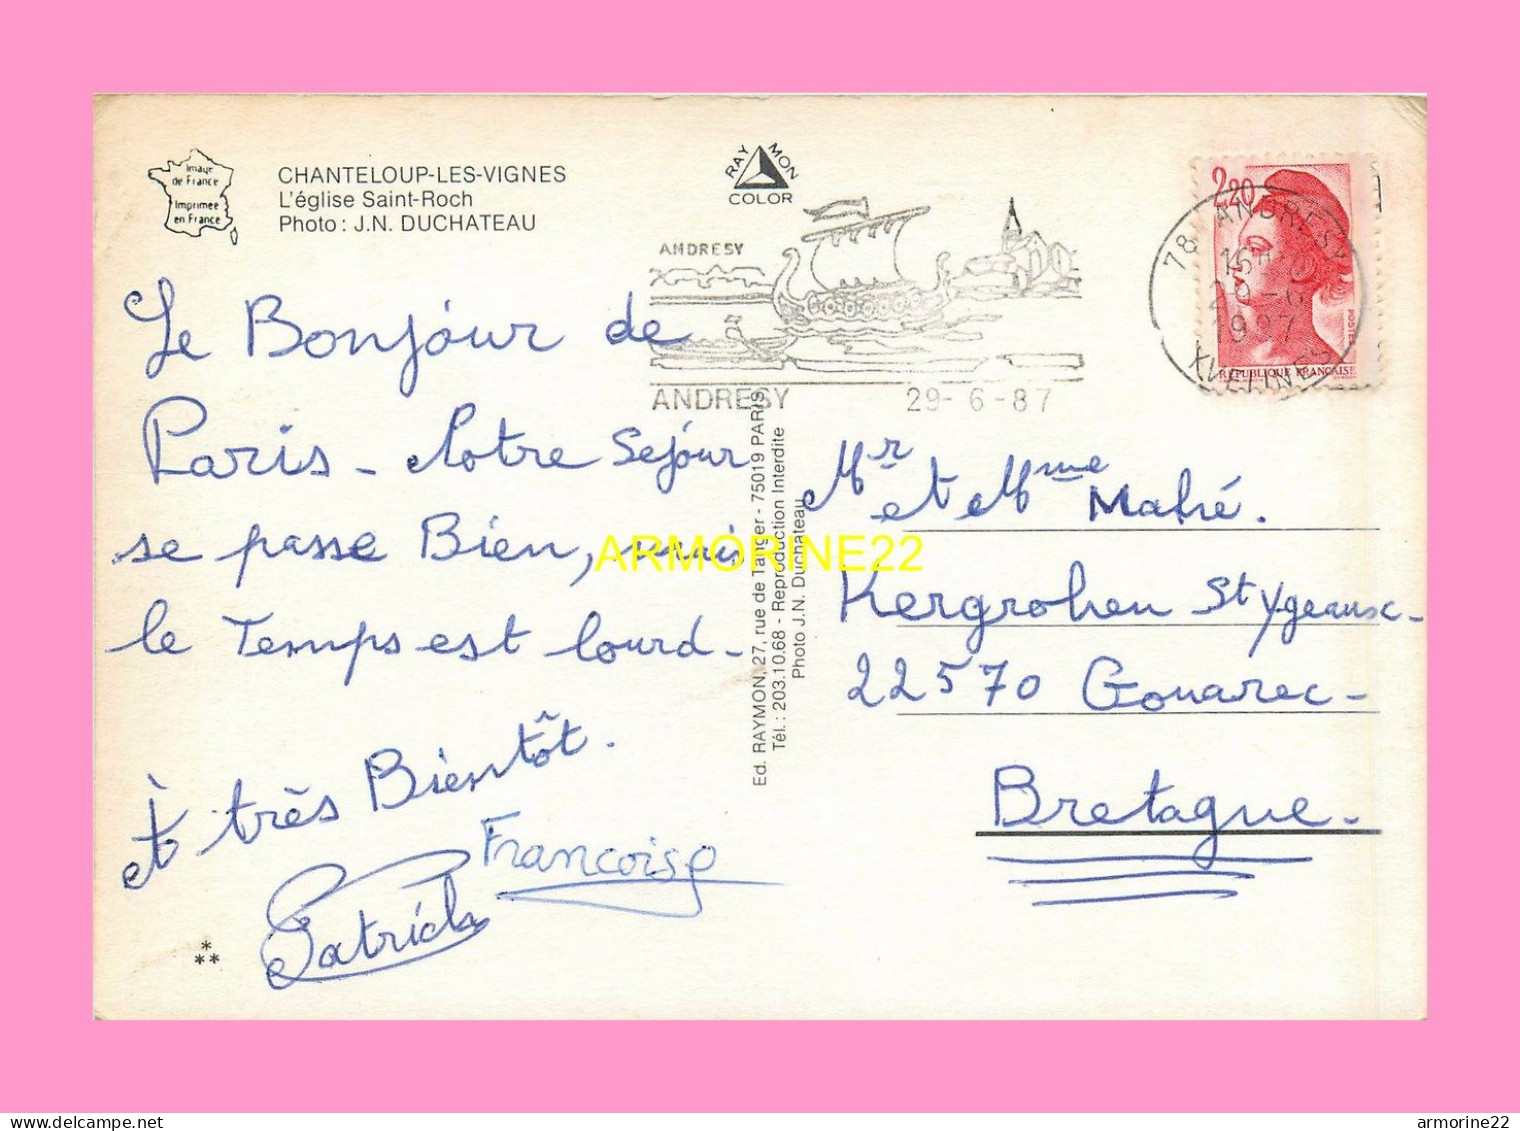 Image
de France
Imprimée
en France
CHANTELOUP-LES-VIGNES
L'église Saint-Roch
Photo : J.N. DUCHATEAU
RAYMON
COLOR
ANDRESY
ANDRESY 29-6-87
2,20
POSTES
RÉPUBLIQUE FRANÇAISE
78 ANDRESY
16H
29-6
1987
YVELINES
Le Bonjour de
Paris - Notre Séjour
se passe Bien, mais
le Temps est lourd -
et à très Bientôt.
Françoise
Patrick
Ed. RAYMON, 27, rue de Tanger - 75019 PARIS
Tél.: 203.10.68 - Reproduction Interdite
Photo J.N. Duchateau
Mr et Mme Mahé.
Kergrohen St Ygeaux -
22570 Gouarec -
Bretagne -
*
**
ARMORINE22
armorine22